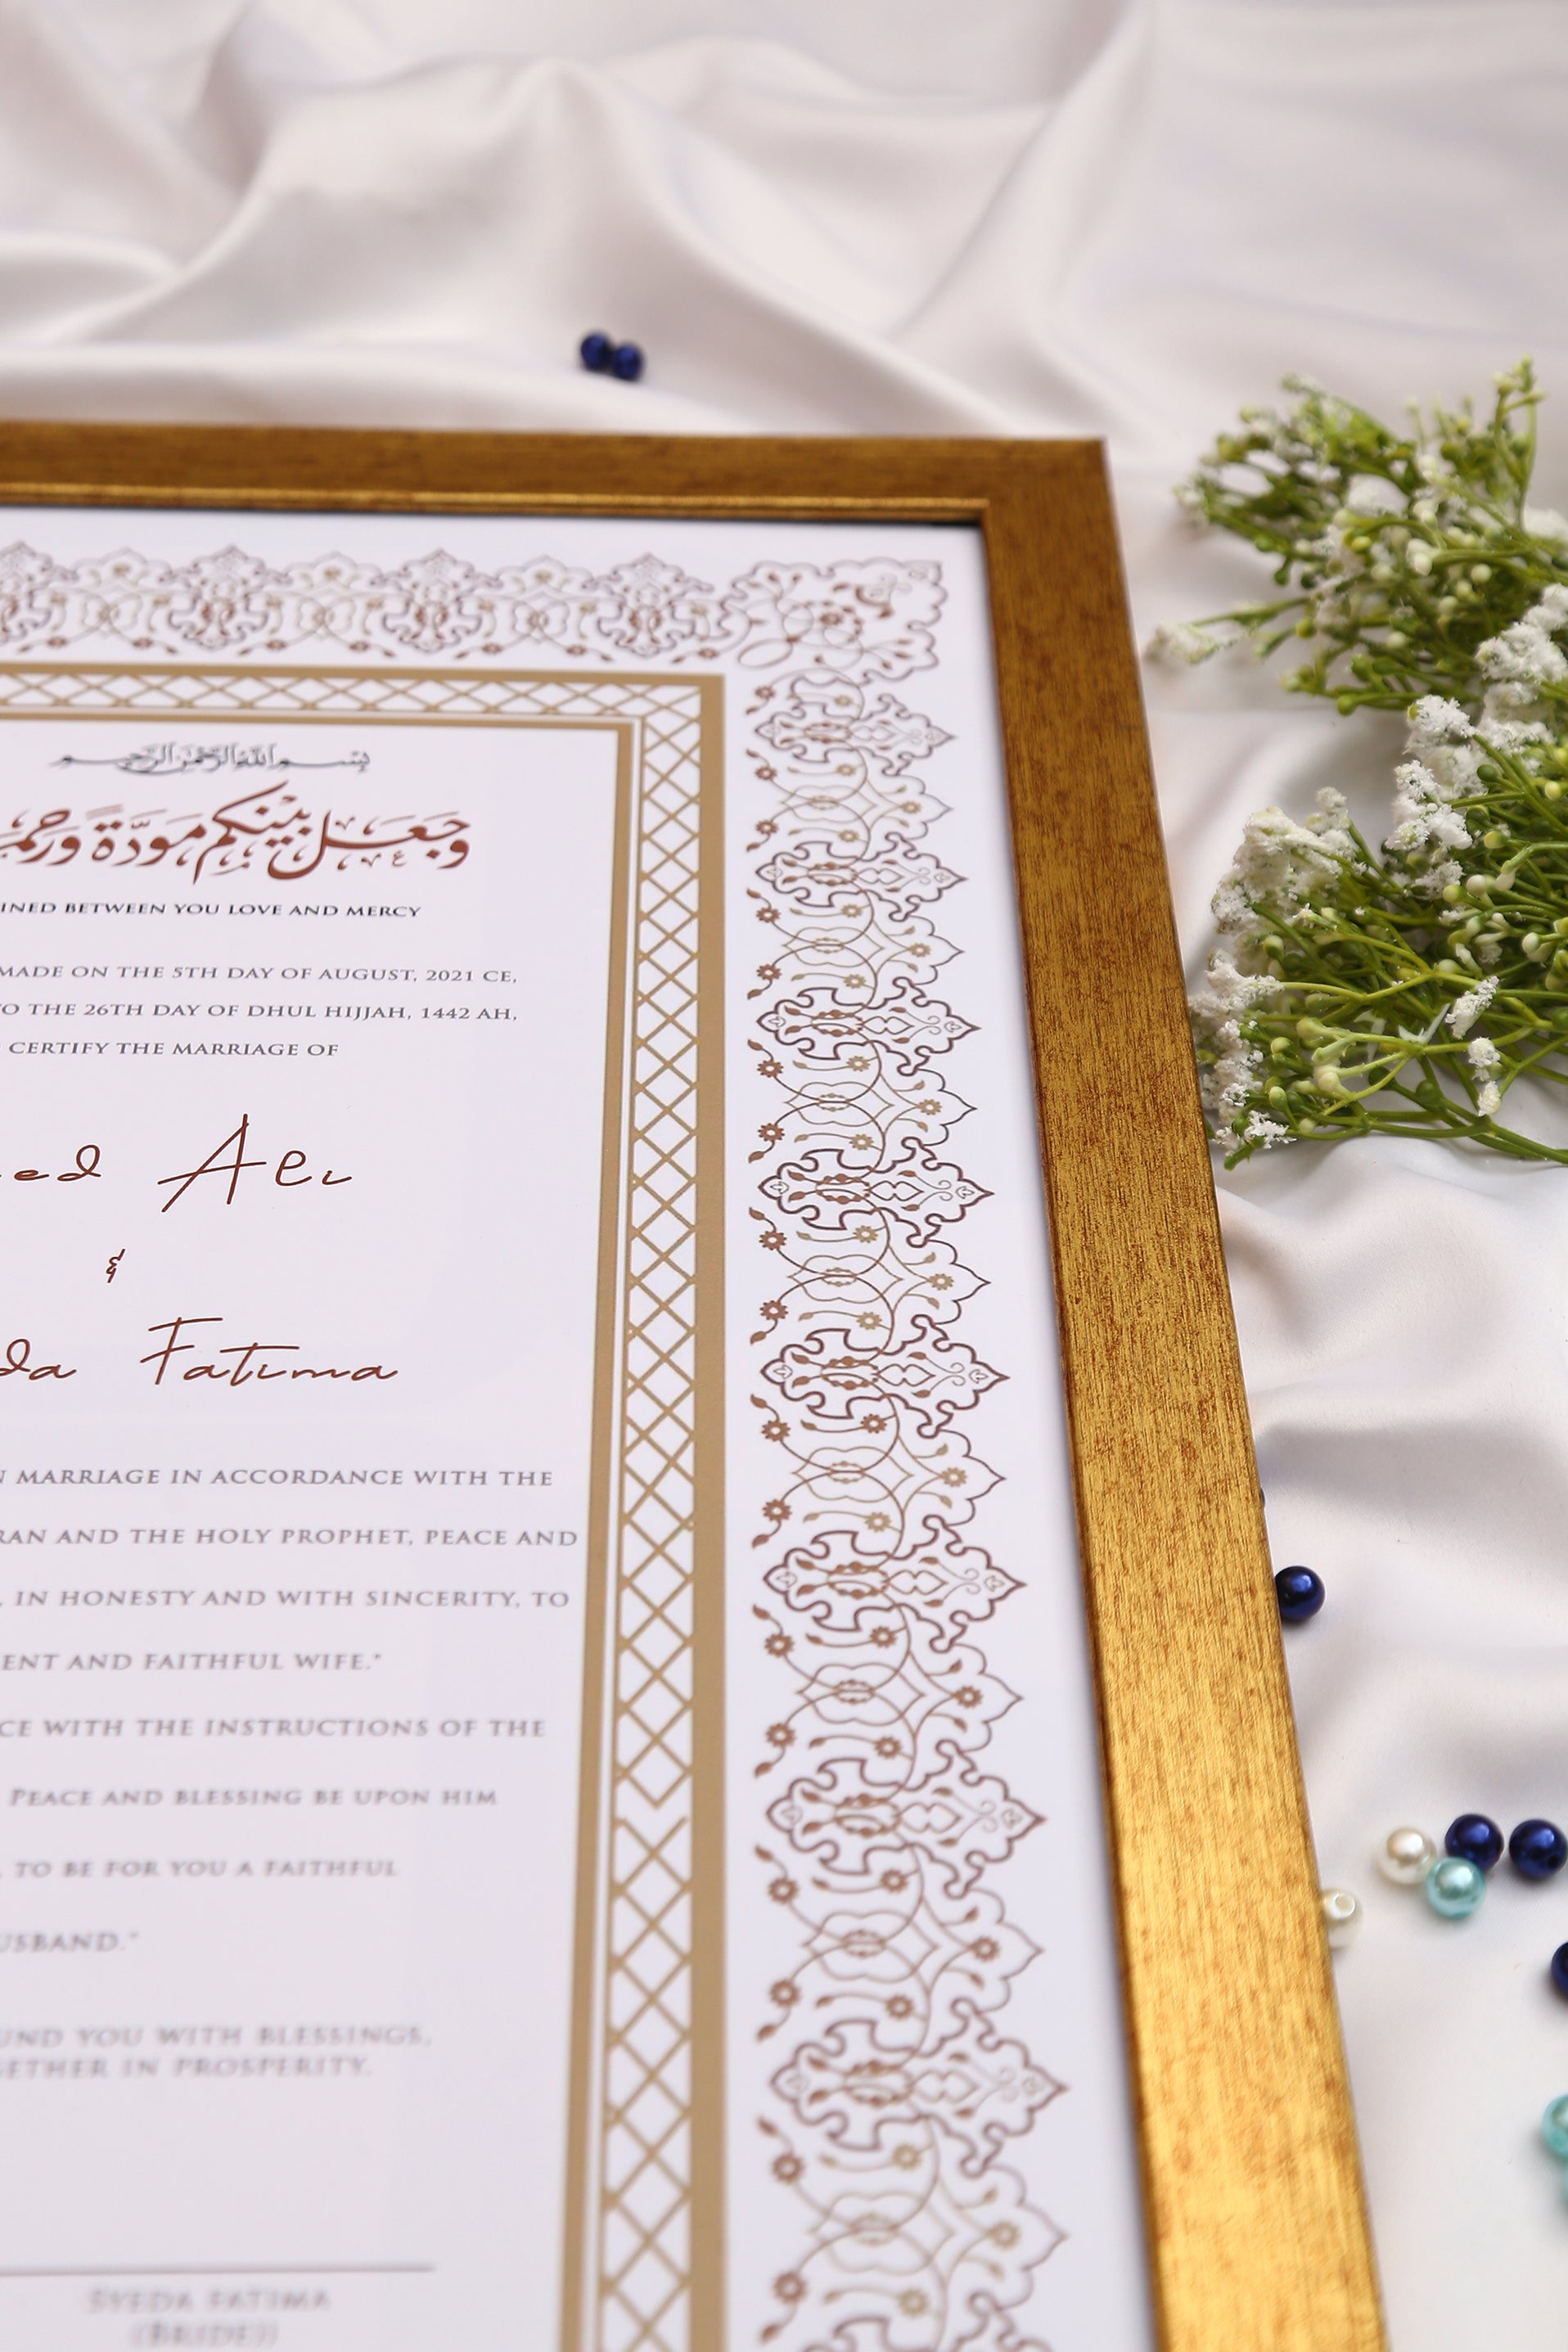 بسم الله الرحمن الرحيم
وَجَعَلَ بَيْنَكُم مَّوَدَّةً
INED BETWEEN YOU LOVE AND MERCY
MADE ON THE 5TH DAY OF AUGUST, 2021 CE,
O THE 26TH DAY OF DHUL HIJJAH, 1442 AH,
CERTIFY THE MARRIAGE OF
ed Ali
&
da Fatima
N MARRIAGE IN ACCORDANCE WITH THE
RAN AND THE HOLY PROPHET, PEACE AND
, IN HONESTY AND WITH SINCERITY, TO
ENT AND FAITHFUL WIFE."
CE WITH THE INSTRUCTIONS OF THE
PEACE AND BLESSING BE UPON HIM
TO BE FOR YOU A FAITHFUL
USBAND."
UND YOU WITH BLESSINGS,
GETHER IN PROSPERITY.
SYEDA FATIMA
(BRIDE))